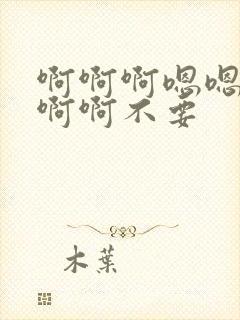 啊啊啊嗯嗯
啊啊不要
木葉